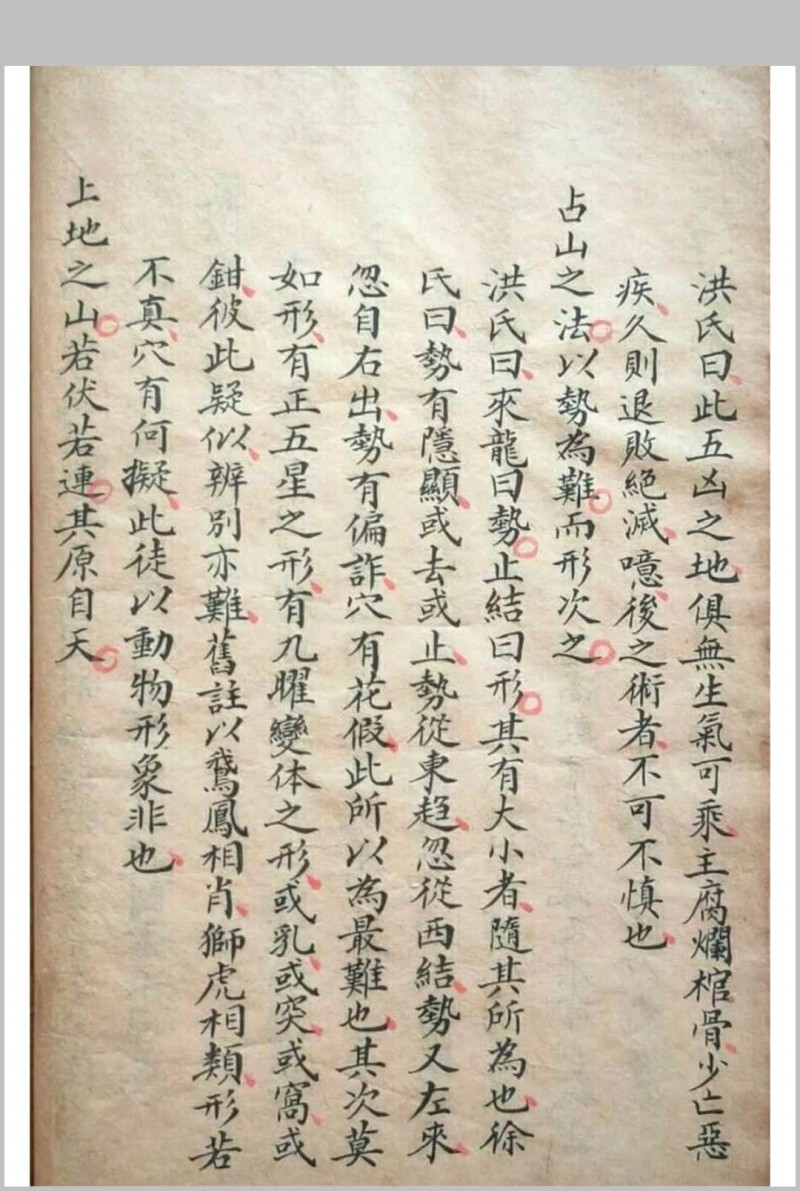 洪氏曰此五凶之地俱無生氣可乘主腐爛棺骨少亡惡
疾久則退敗絕滅噫後之術者不可不慎也
占山之法以勢為難而形次之
洪氏曰來龍曰勢止結曰形其有大小者隨其所為也徐
氏曰勢有隱顯或去或止勢從東趋忽從西結勢又左來
忽自右出勢有偏詐穴有花假此所以為最難也其次莫
如形有正五星之形有九曜變体之形或乳或突或窩或
鉗彼此疑似辨別亦難舊註以鵞鳳相肖獅虎相類形若
不真穴有何擬此徒以動物形象非也
上地之山若伏若連其原自天